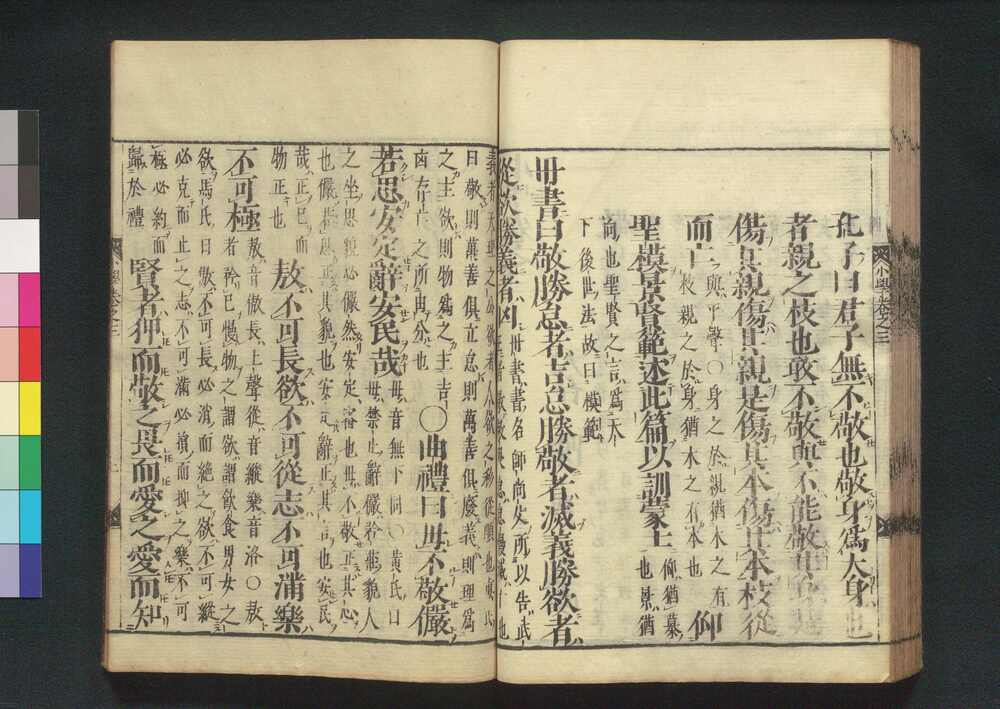 孔子曰君子無不敬也敬身爲大身也
者親之枝也敢不敬與不能敬其身是
傷其親傷其親是傷其本傷其本枝從
而亡 與平聲○身之於親猶木之有枝親之於身猶木之有本也 仰
聖模景賢範述此篇以訓蒙士 仰猶慕也景猶
向也聖賢之言爲天
下後世法故曰模範
丹書曰敬勝怠者吉怠勝敬者滅義勝欲者
從欲勝義者凶
丹書書名師尚父所以告武
義者天理之
日敬則萬善俱立怠則萬善俱廢義則理爲
之主欲則物爲之主吉
凶存亡之所由分也 ○曲禮曰毋不敬儼
若思安定辭安民哉 毋音無下同○
毋禁止辭儼矜莊貌人
之坐思貌必儼然安定審也毋不敬正其心
也儼若思正其貌也安定辭正其言也安民
哉正己而
物正者也 敖不可長欲不可從志不可滿樂
不可極 敖音傲長上聲從音縱樂音洛○敖
者矜己慢物之謂欲謂飲食男女之
欲馬氏曰敖不可長必消而絶之欲不可縱
必克而止之志不可滿必損而抑之樂不可
極必約而
歸於禮 賢者狎而敬之畏而愛之愛而知
小學卷之三